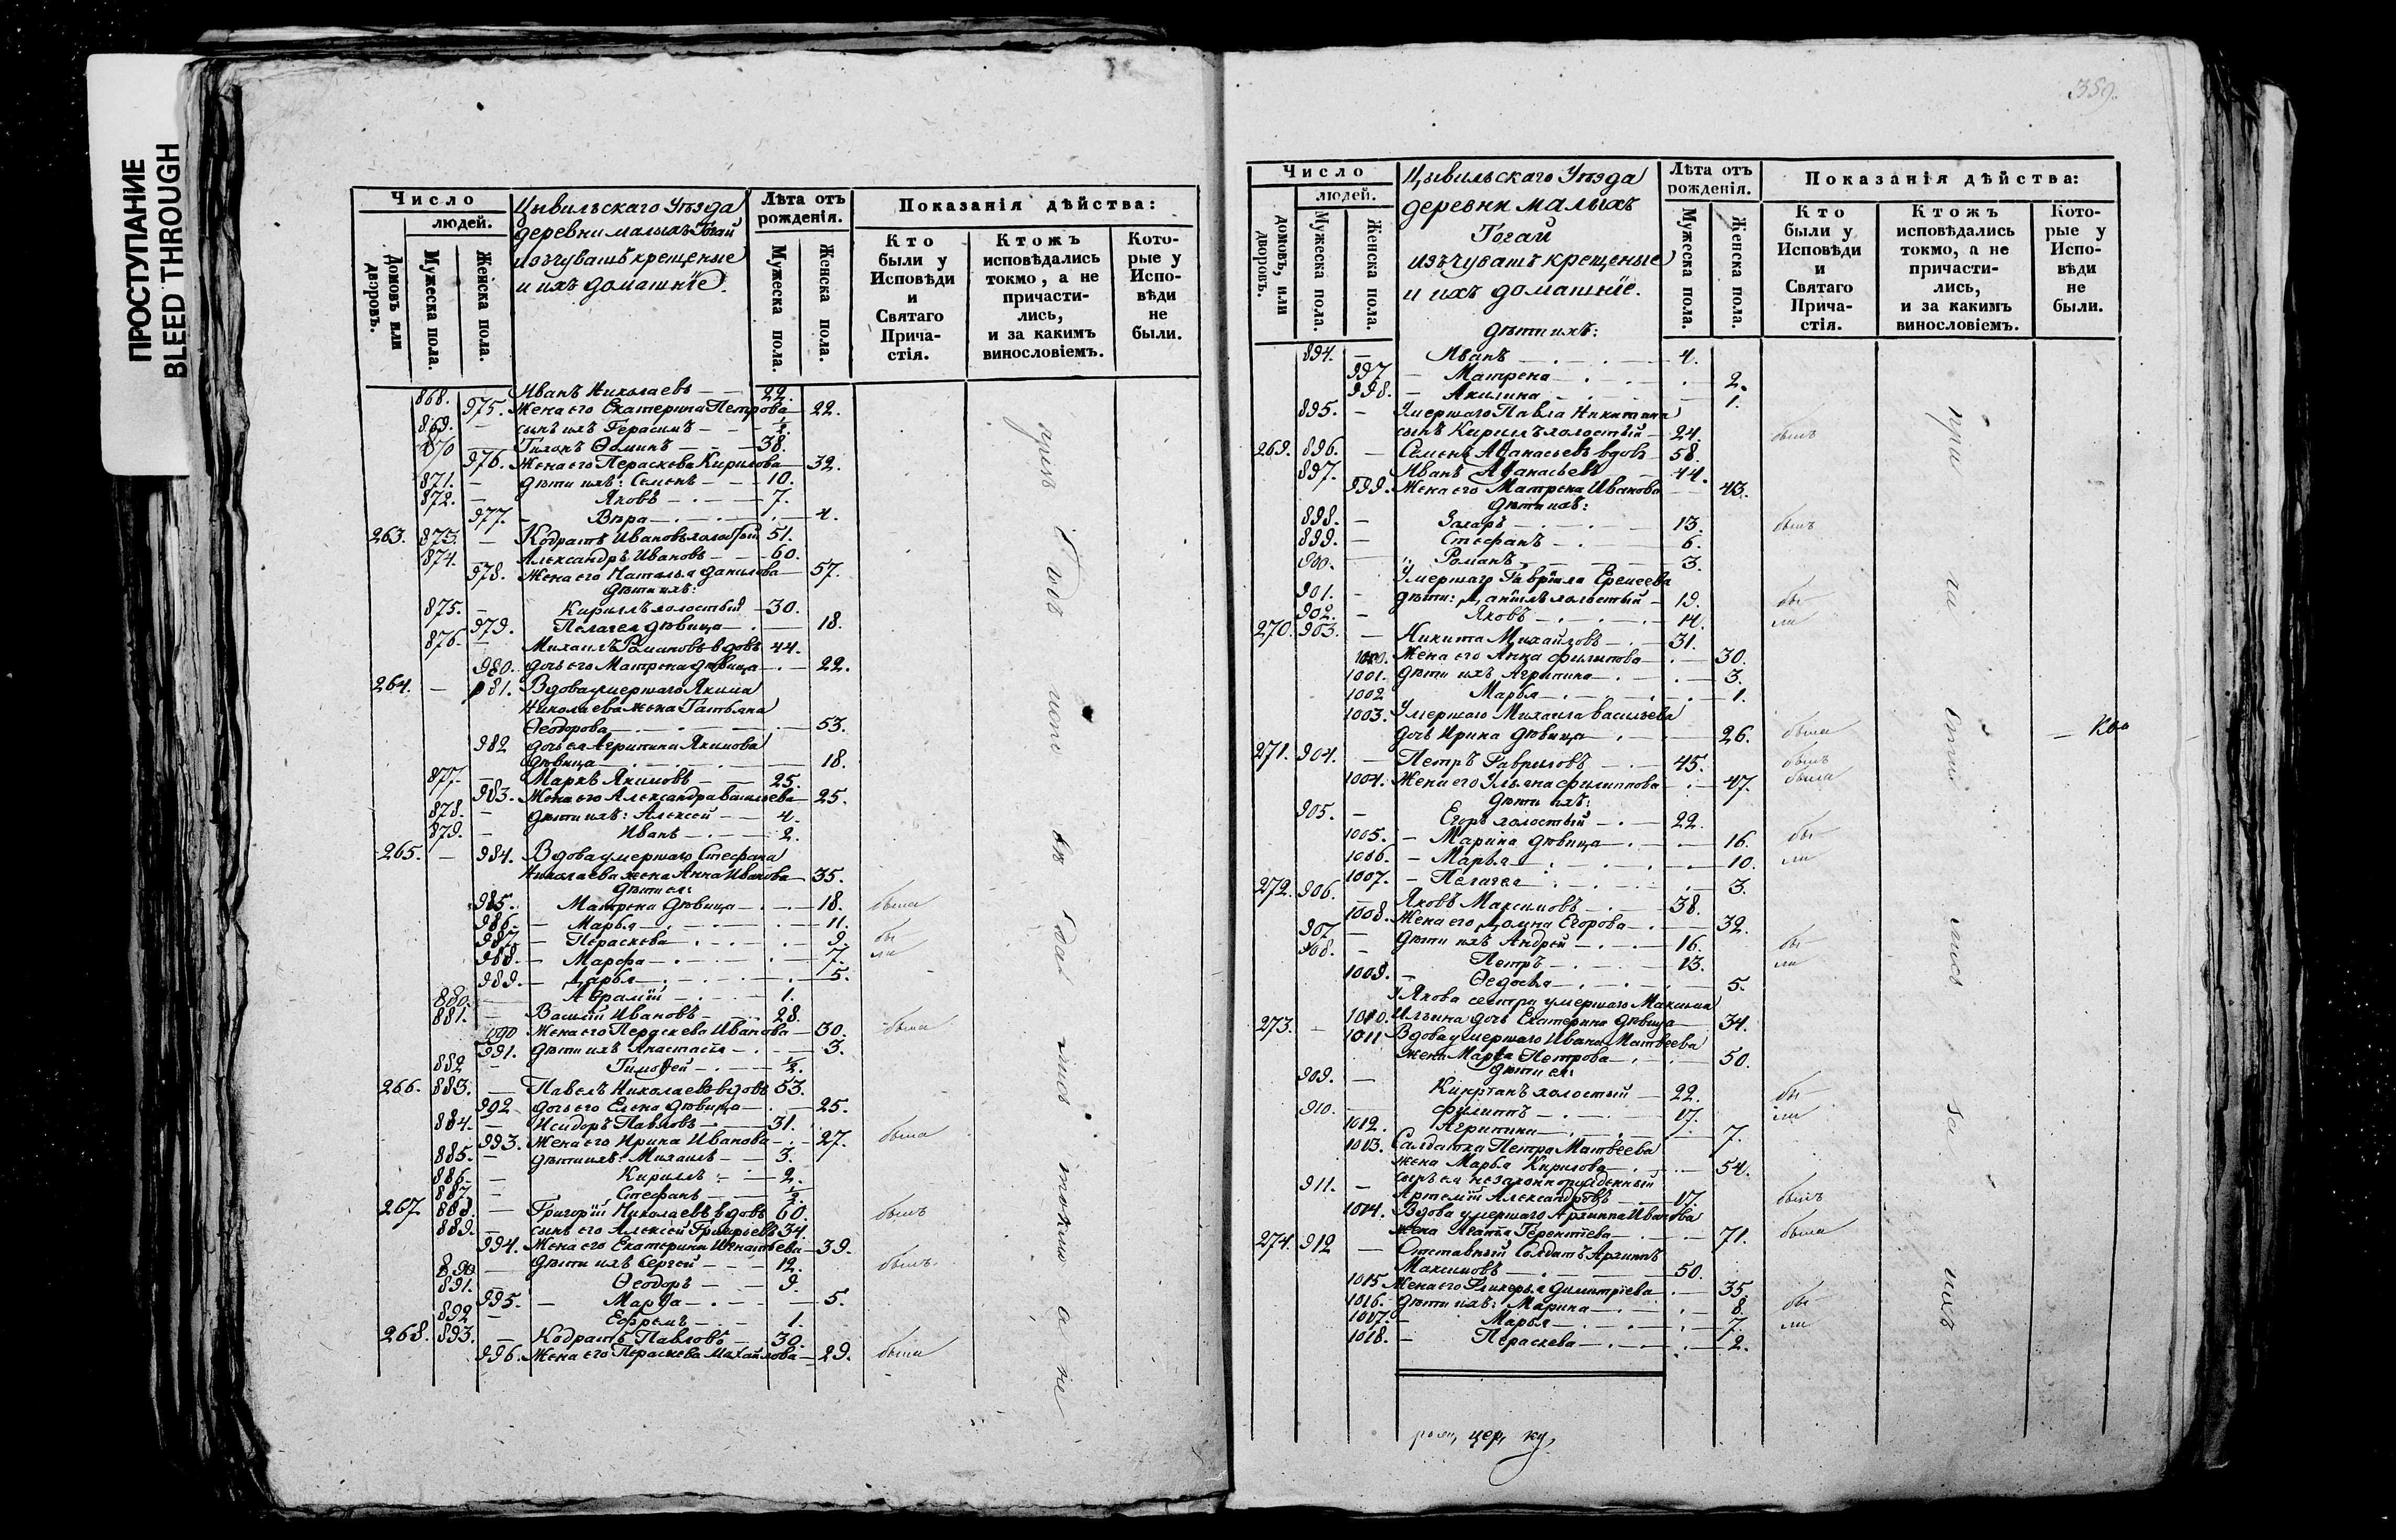 ПРОСТУПАНИЕ
BLEED THROUGH
Число
людей.
Домовъ или дворовъ.
Мужеска пола.
Женска пола.
Цывильскаго Уѣзда
деревни малыхъ Тогай
изъ чувашъ крещеные
и ихъ домашніе.
Лѣта отъ рожденія.
Мужеска пола.
Женска пола.
Показанія дѣйства:
Кто были у Исповѣди и Святаго Прича-стія.
Ктожъ исповѣдались токмо, а не причасти-лись, и за какимъ винословіемъ.
Кото-рые у Испо-вѣди не были.
868. Иванъ Николаевъ 22.
975. Жена его Екатерина Петрова 22.
869. сынъ ихъ Герасимъ ½.
870 Тихонъ Ѳоминъ 38.
976. Жена его Пераскева Кирилова 32.
871. дѣти ихъ: Семенъ 10.
872. Яковъ 7.
977. Вѣра 4.
263. 873. Кодратъ Ивановъ холостый 51.
874. Александръ Ивановъ 60.
978. Жена его Наталья Данилова 57.
дѣти ихъ:
875. Кириллъ холостый 30.
979. Пелагея дѣвица 18.
876. Михаилъ Романовъ вдовъ 44.
980. дочь его Матрена дѣвица 22.
264. 981. Вдова умершаго Якима
Николаева жена Татьяна
Ѳеодорова 53.
982 дочь ея Агрипина Якимова
дѣвица 18.
877. Маркъ Якимовъ 25.
983. Жена его Александра Васильева 25.
878. дѣти ихъ: Алексей 4.
879. Иванъ 2.
265. 984. Вдова умершаго Стефана
Николаева жена Анна Иванова 35.
дѣти ея:
985. Матрена дѣвица 18. была
986. Марья 11.
987. Пераскева 9. бы
988. Марфа 7. ли
989. Дарья 5.
880. Аврамій 1.
881. Василій Ивановъ 28.
990 Жена его Пераскева Иванова 30. была
991. дѣти ихъ Анастасія 3.
882 Тимоѳей ½.
266. 883. Павелъ Николаевъ вдовъ 53.
992 дочь его Елена дѣвица 25.
884. Исидоръ Павловъ 31.
993. Жена его Ирина Иванова 27. была
885. дѣти ихъ: Михаилъ 3.
886. Кириллъ 2.
887. Стефанъ ½.
267 888. Григорій Николаевъ вдовъ 60. былъ
889. сынъ его Алексей Григорьевъ 34.
994. Жена его Екатерина Игнатьева 39.
890 дѣти ихъ Сергей 12. былъ
891. Ѳеодоръ 9.
995. Марѳа 5.
892 Ефремъ 1.
268. 893. Кодратъ Павловъ 30.
996. Жена его Пераскева Михайлова 29. была
359.
Число
людей.
домовъ, или дворовъ.
Мужеска пола.
Женска пола.
Цывильскаго Уѣзда
деревни малыхъ
Тогай
изъ чувашъ крещеные
и ихъ домашніе.
Лѣта отъ рожденія.
Мужеска пола.
Женска пола.
Показанія дѣйства:
Кто были у Исповѣди и Святаго Прича-стія.
Ктожъ исповѣдались токмо, а не причасти-лись, и за какимъ винословіемъ.
Кото-рые у Испо-вѣди не были.
дѣти ихъ:
894. Иванъ 4.
997 Матрена 2.
998. Акилина 1.
895. Умершаго Павла Никитина
сынъ Кириллъ холостый 24. былъ
269. 896. Семенъ Аѳанасьевъ вдовъ 58.
897. Иванъ Аѳанасьевъ 44.
999. Жена его Матрена Иванова 43.
дѣти ихъ:
898. Захаръ 13. былъ
899. Стефанъ 6.
900. Романъ 3.
Умершаго Гавріила Еремеева
901. дѣти: Даніилъ холостый 19. бы
902. Яковъ 14. ли
270. 903. Никита Михайловъ 31.
1000. Жена его Анна Филипова 30.
1001. дѣти ихъ Агрипина 3.
1002 Марья 1.
1003. Умершаго Михаила Васильева
дочь Ирина дѣвица 26. была
271. 904. Петръ Гавриловъ 45. былъ
1004. Жена его Ульяна Филиппова 47. была
дѣти ихъ:
905. Егоръ холостый 22.
1005. Марина дѣвица 16. бы
1006. Марья 10. ли
1007. Пелагея 3.
272. 906. Яковъ Максимовъ 38.
1008. Жена его Домна Егорова 32.
907 дѣти ихъ Андрей 16. бы
908. Петръ 13. ли
1009. Ѳедосья 5.
Якова сестра умершаго Максима
1010. Ильина дочь Екатерина дѣвица 34.
273. 1011 Вдова умершаго Ивана Матвеева
жена Марѳа Петрова 50.
дѣти ея:
909. Кипріанъ холостый 22. бы
910. Филиппъ 17. ли
1012. Агрипина 7.
1013. Салдатка Петра Матвеева
жена Марья Кирилова 54.
911. сынъ ея незаконнорожденный
Артемій Александровъ 17. былъ
1014. Вдова умершаго Архиппа Иванова
жена Агаѳья Терентіева 71. была
274. 912 Отставный Солдатъ Архиппъ
Максимовъ 50.
1015 Жена его Гликерья Димитріева 35.
1016. дѣти ихъ: Марина 8. бы
1017. Марья 7. ли
1018. Пераскева 2.
цер, ку,